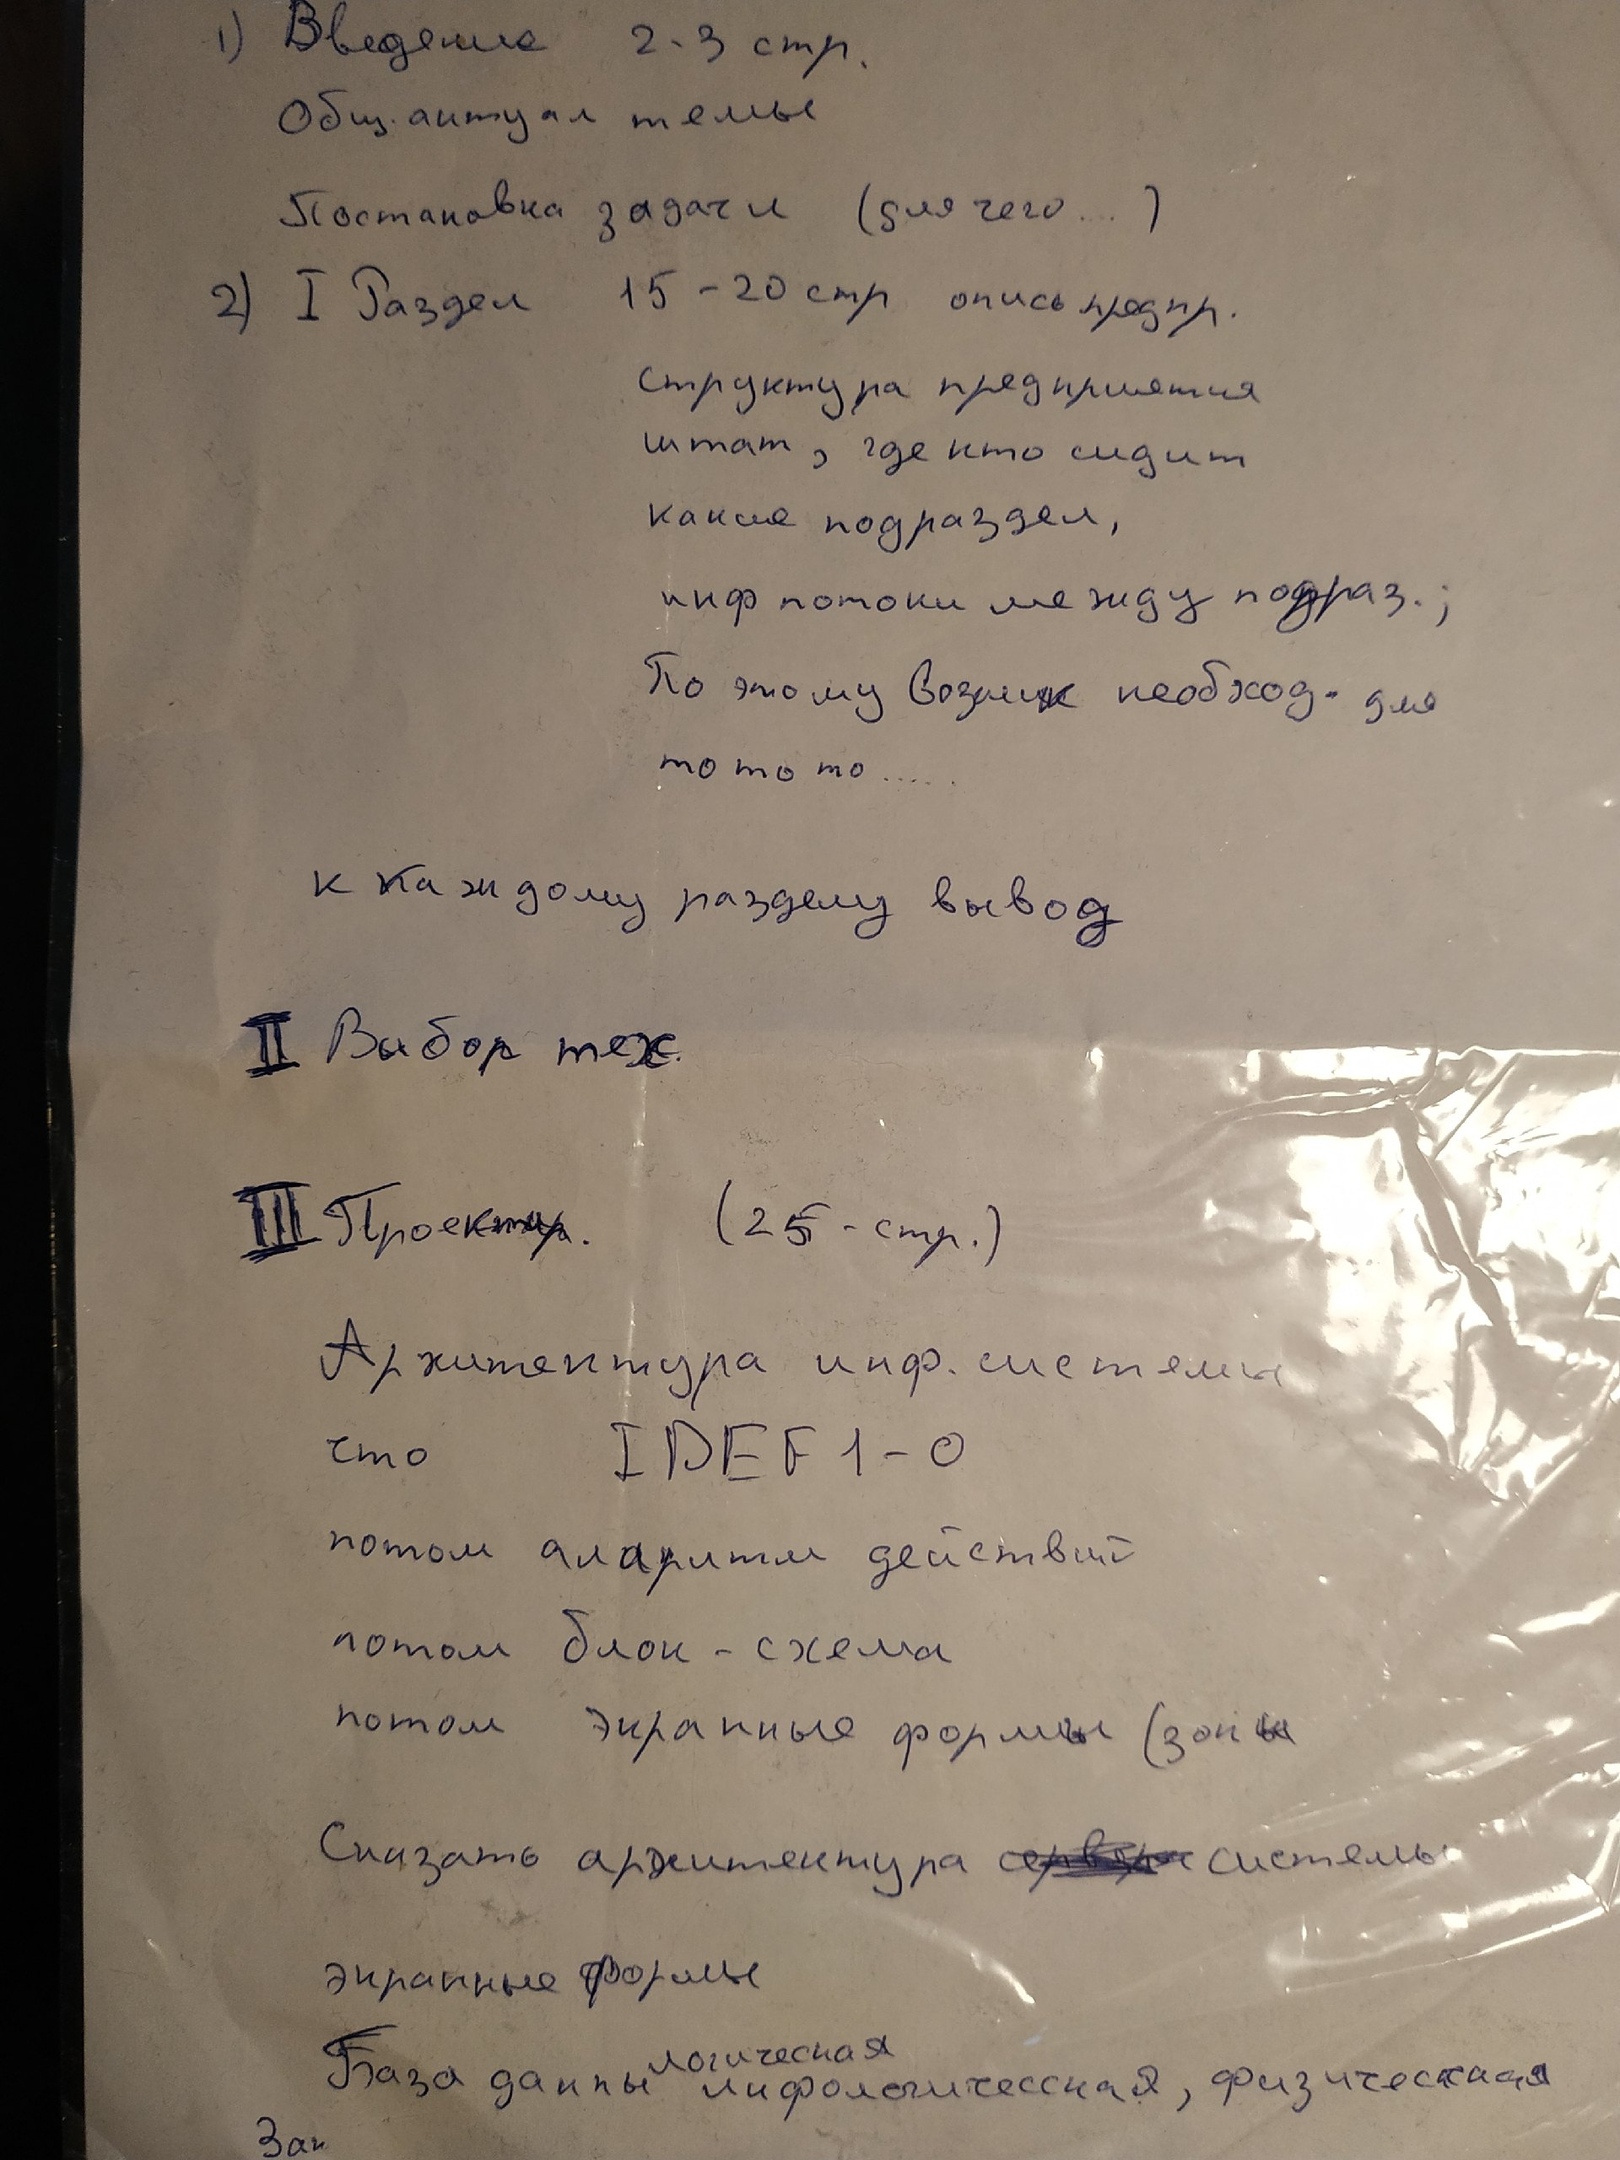 1) Введение 2-3 стр.
Общ. актуал темы
Постановка задачи (для чего....)
2) I Раздел 15-20 стр опись предпр.
структура предприятия
штат, где кто сидит
какие подраздел,
инф потоки между подраз.;
По этому возник необход. для
то то то.....
к каждому разделу вывод
II Выбор тех.
III Проектир. (25-стр.)
Архитектура инф. системы
что IDEF1-0
потом аларитм действий
потом блок-схема
потом экранные формы (зоны
Сказать архитектура системы
экранные формы
логическая
База данны инфологичесская, физическая
Зак